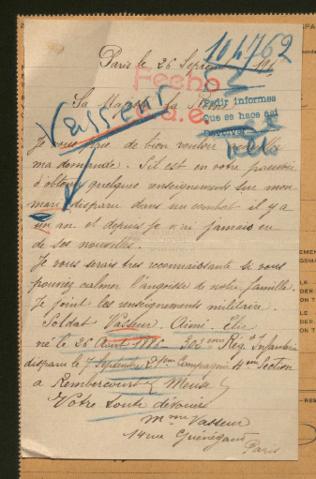 104762
Paris le 26 Septembre 191
Fecho
Sa Majesté la Reine
Pedir informes
que se hace así
Vasseur
Je vous prie de bien vouloir
ma demande. S'il est en votre pouvoir
d'obtenir quelques renseignements sur mon
mari disparu dans un combat il y a
un an et depuis je n'ai jamais eu
de ses nouvelles.
Je vous serais très reconnaissante si vous
pouvez calmer l'angoisse de notre famille.
Je joint les renseignements militaire.
Soldat Vasseur Aimé Elie
né le 26 Août 1886 - 302ème Rég. d'Infanterie
disparu le 7 Septembre Compagnie 4ème Section
à Rembercourt (Meuse)
Votre toute dévouée
Mme Vasseur
14 rue Guénégaud
Paris